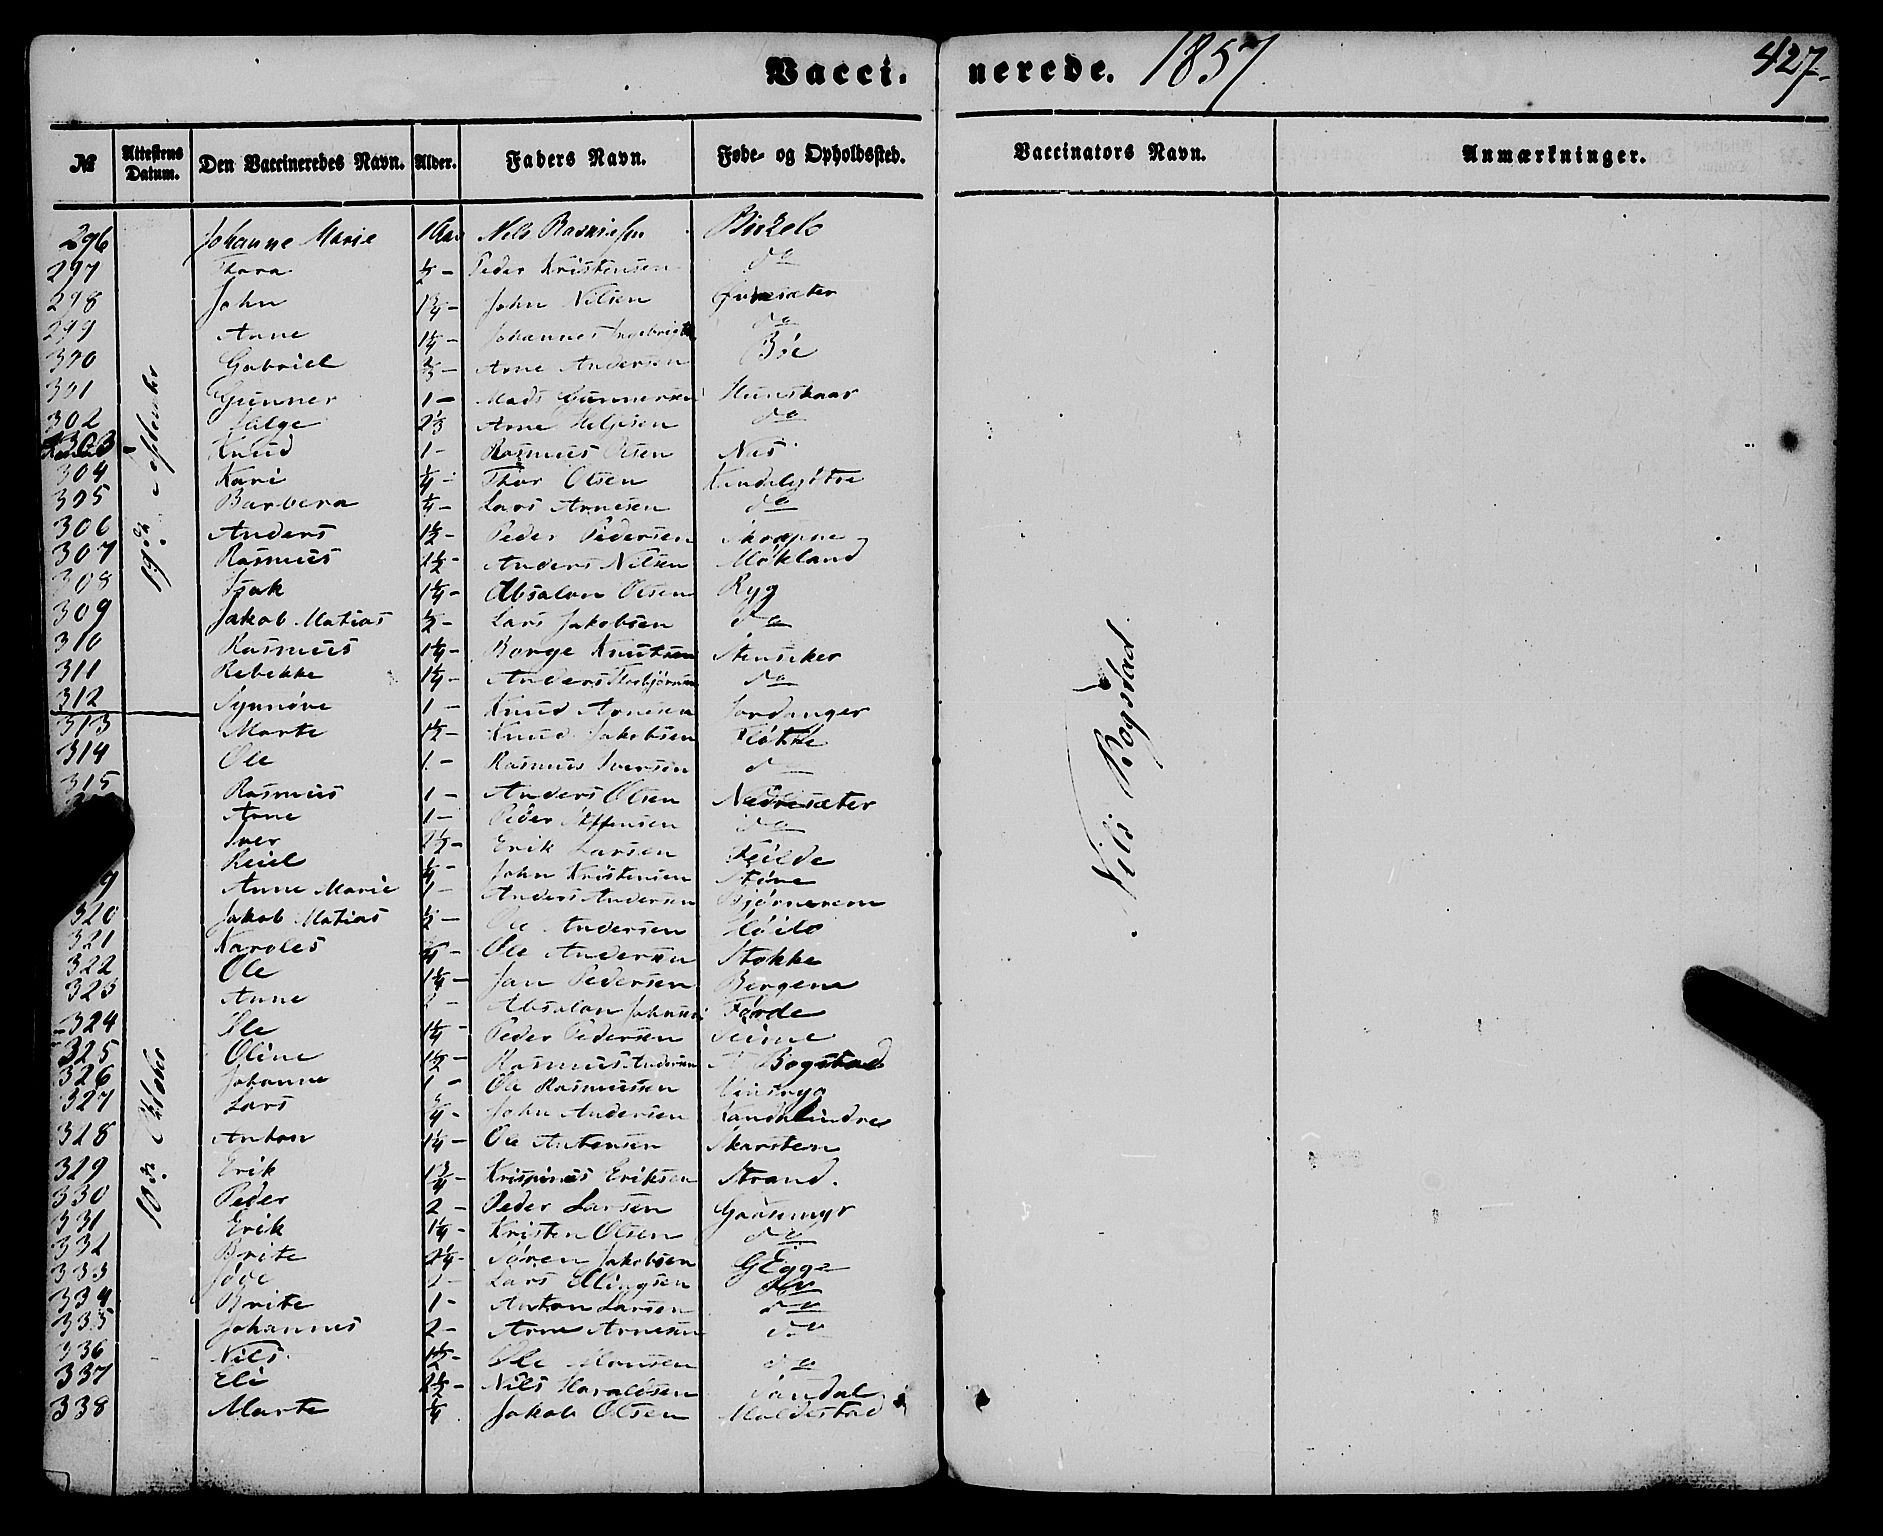 Vaccinerede. 1857. 427.
№ Attestens Datum. Den Vaccineredes Navn. Alder. Faders Navn. Føde- og Opholdssted. Vaccinators Navn. Anmærkninger.
19de
10de
Nils Rogstad
296 Johanne Marie 1 Nils Rasmussen
297 Thora ½ - Peder Kristensen do
298 John 1¾ - John Nilsen Øvresæter
299 Anne 1¼ - Johannes do
300 Gabriel ⅔ - Arne Andersen Bøe
301 Gunner 1 - Mads Gunnersen Hunskaar
302 Helge 2⅓ Arne Helgesen do
303 Knud 1 - Rasmus Olsen Nes
304 Kari ¼ - Thor Olsen
305 Barbera ¼ - Lars Arnesen do
306 Anders 1½ - Peder Pedersen
307 Rasmus 1½ - Anders Nilsen Møkland
308 Isak 1¼ - Absalon Olsen Ryg
309 Jakob Matias ½ - Lars Jakobsen do
310 Rasmus 1¼ - Børge Knutsen
311 Rebekke 1¼ - Anders Thorbjørnsen do
312 Synnøve 1 - Knud Arnesen Jordanger
313 Marte 1½ - Knud Jakobsen Fløtte
314 Ole 1 - Rasmus Iversen do
315 Rasmus 1 - Anders Olsen Nedresæter
Arne 1 - Peder Steffensen do
Iver 2½ - Erik Larsen
Reiel ¼ - John Kristensen Støve
9 Anne Marie 1 - Anders Andersen Bjørnerem
320 Jakob Matias ½ - Ole Andersen
321 Karoles ¼ - Ole Andersen Stokke
322 Ole 1¼ - Jan Pedersen Bergene
323 Anne Absalon Førde
324 Ole 1¼ - Peder Pedersen Seime
325 Oline 1½ - Rasmus Andersen Bogstad
326 Johanne 1 - Ole Rasmussen
327 Lars ¾ - John Andersen
328 Anton 1¼ - Ole Antonsen Skarstein
329 Erik 1¾ - Krispinus Eriksen Strand.
330 Peder 2 - Peder Larsen Gaasemyr
331 Erik 1¼ - Kristen Olsen do
332 Brite 2¼ - Søren Jakobsen
333 Lars Ellingsen do
334 Brite 1 - Anton Larsen do
335 Johannes 2 - Arne Arnesen do
336 Nils 1½ - Ole Monsen do
337 Eli 2½ - Nils Haraldsen Sandal
338 Marte ¼ Jakob Olsen Moldestad